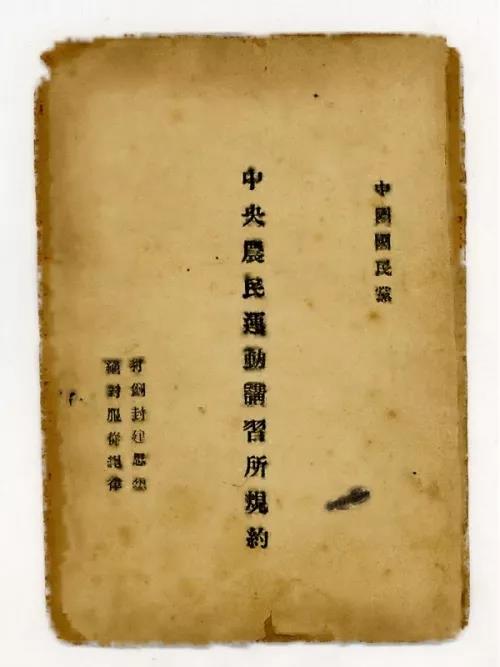 中國國民黨
中央農民運動講習所規約
打倒封建思想
絕對服從紀律